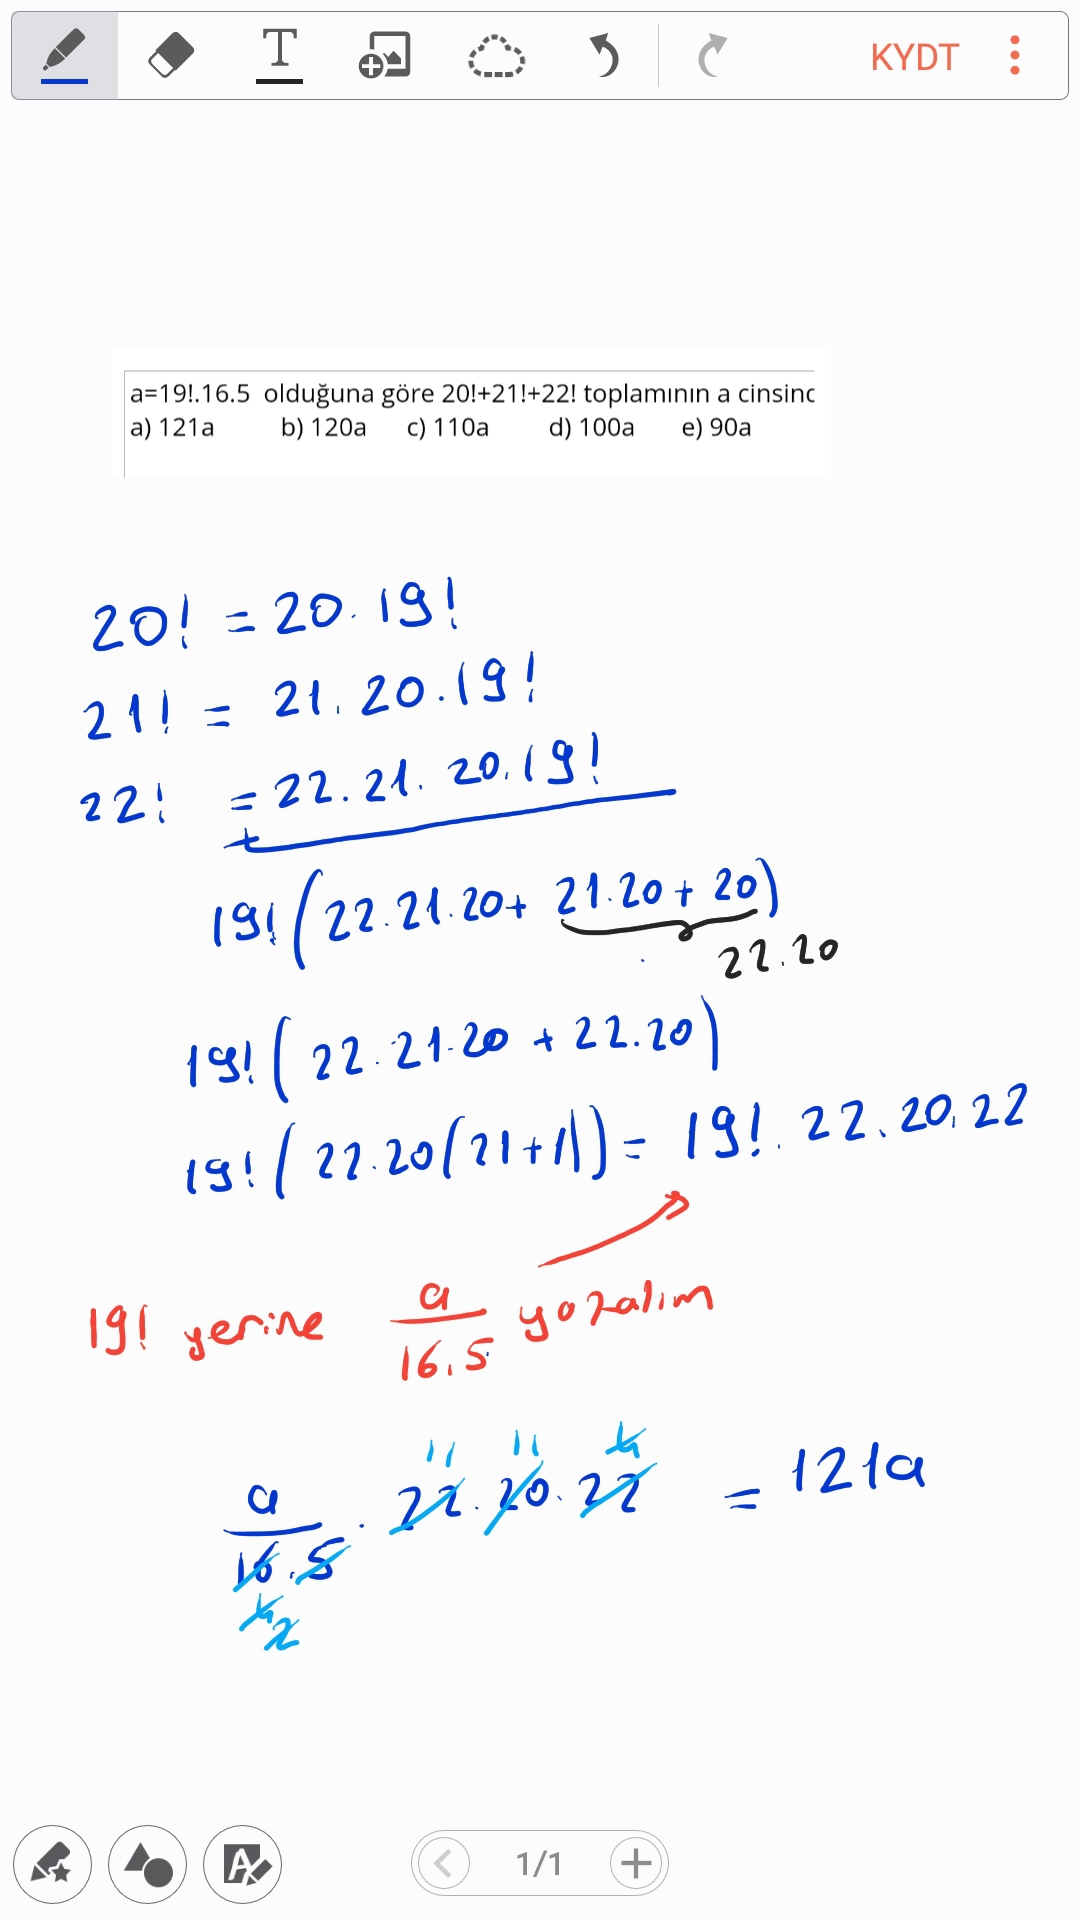 T KYDT
a=19!.16.5 olduğuna göre 20!+21!+22! toplamının a cinsinc
a) 121a b) 120a c) 110a d) 100a e) 90a
20! = 20.19!
21! = 21.20.19!
22! = 22.21.20.19!
+
19!(22.21.20+ 21.20+20)
22.20
19!(22.21.20 + 22.20)
19!(22.20(21+1)) = 19!.22.20.22
19! yerine a/16.5 yazalım
11 11 4
a/16.5 . 22.20.22 = 121a
4 2
A 1/1